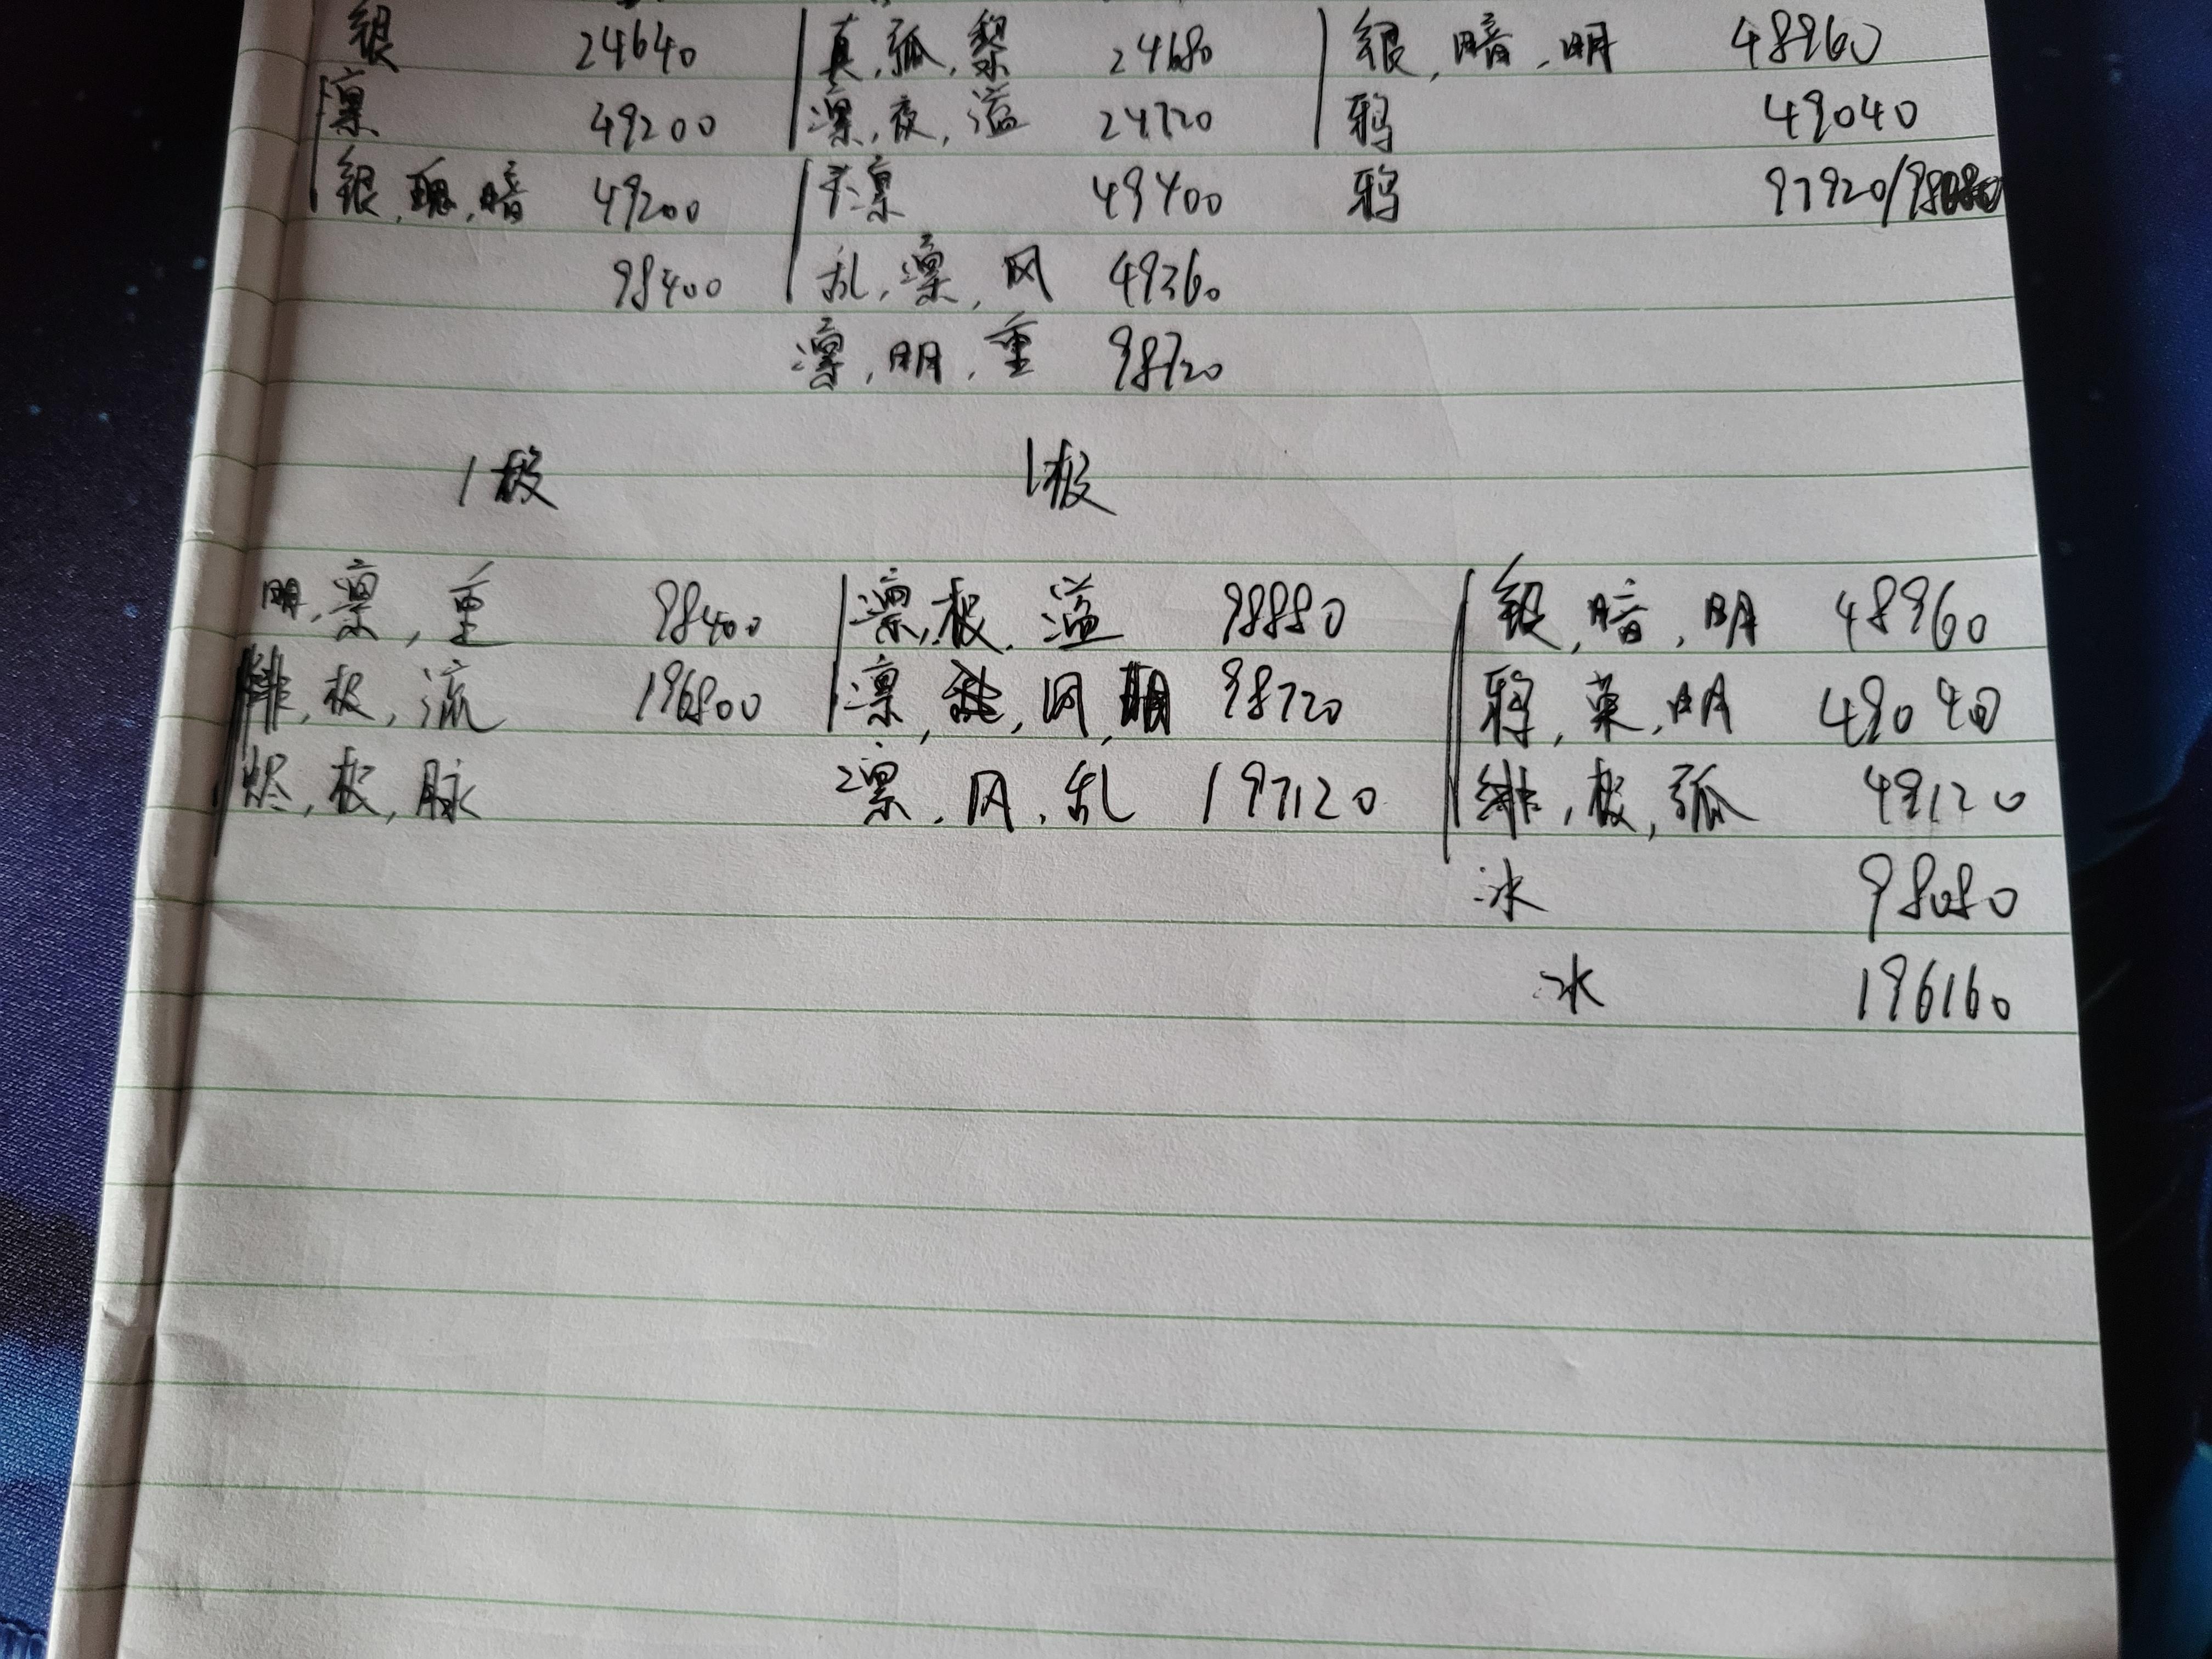 银 24640 真,孤,黎 24680 银,暗,明 48960
凛 49200 凛,夜,溢 24720 鸦 49040
银,暗 49200 凛 49400 鸦 97920/98080
98400 乱,凛,风 49360
凛,明,重 98720
1极 1极
明,凛,重 98400 凛,极,溢 98880 银,暗,明 48960
绯,极,流 196800 凛,风,明 98720 鸦,寒,明 49040
烬,极,脉 凛,风,乱 197120 绯,极,孤 49120
冰 98080
冰 196160